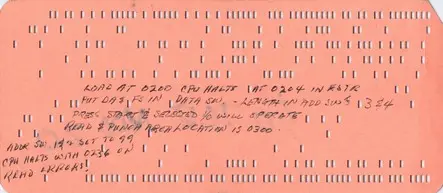 LOAD AT 0200 CPU HALTS AT 0204 IN RSTR
PUT DAS, FC IN DATA SW. - LENGTH IN ADD SWS 3 & 4
PRESS START & SELECTED I/O WILL OPERATE
READ & PUNCH AREA LOCATION IS 0300.
ADDR SW 1 & 2 SET TO 99
CPU HALTS WITH 0236 ON
READ ERRORS!